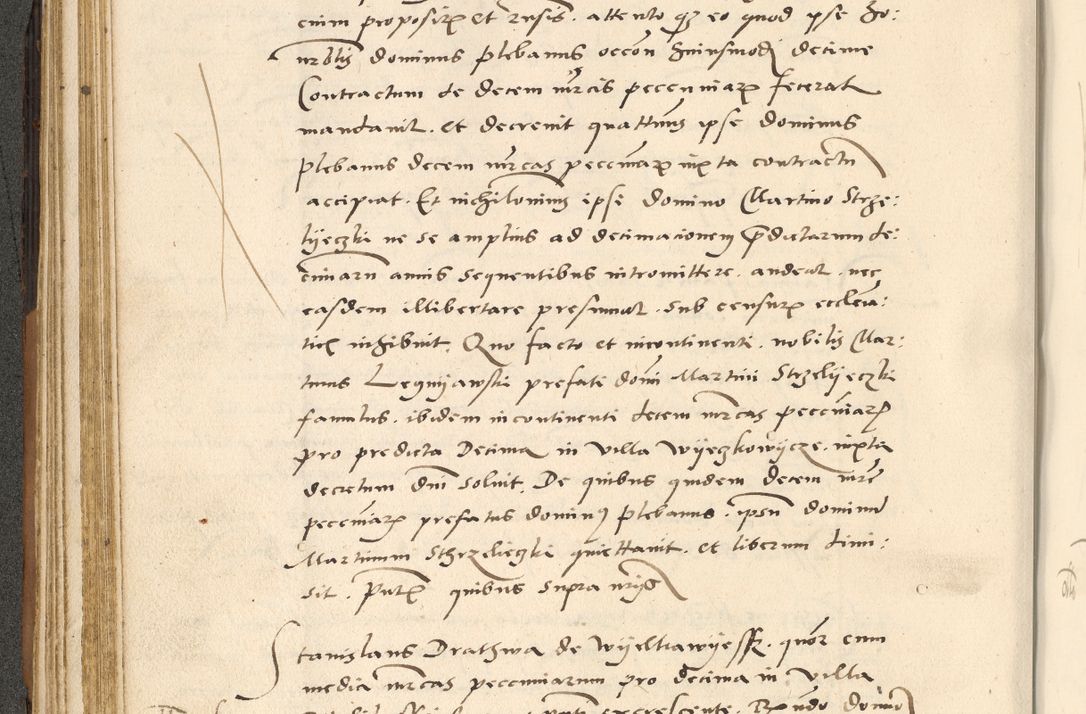 enim proposit et rnsis. attento q eo quod ipse ho:
nrblis dominus plebanus occon huiusmodi decime
Contractum de decem mrcis pecuniar fecerat
mandavit. Et decrevit quattinus ipse dominus
plebanus decem mrcas pecuniar iuxta contractu
accipiat. Et nichilominus ipse domino Martino Strze:
lyeczki ne se amplius ad decimacionem pdictarum de:
cimaru annis sequentibus intromittere. audeat. nec
easdem illibertare presumat. sub censur ecclesia:
tica inhibuit. Quo facto et incontinenti. nobilis Mar:
tinus Legnyawski prefati domi Martini Strzelyeczki
famulus. ibidem incontinenti decem mrcas pecuniar
pro predicta Decima in villa Wyeczkowycze. iuxta
decretum dni solvit. De quibus quidem decem mrc
pecuniar prefatus dominus plebanus. ipsu dominu
Martinum Sthrzelieczki quiettavit. et liberum dimi:
sit. Pntib quibus supra
Stanislaus Drathwa de quor cum
media mrcas pecuniarum pro decima in villa
excrescente. domino